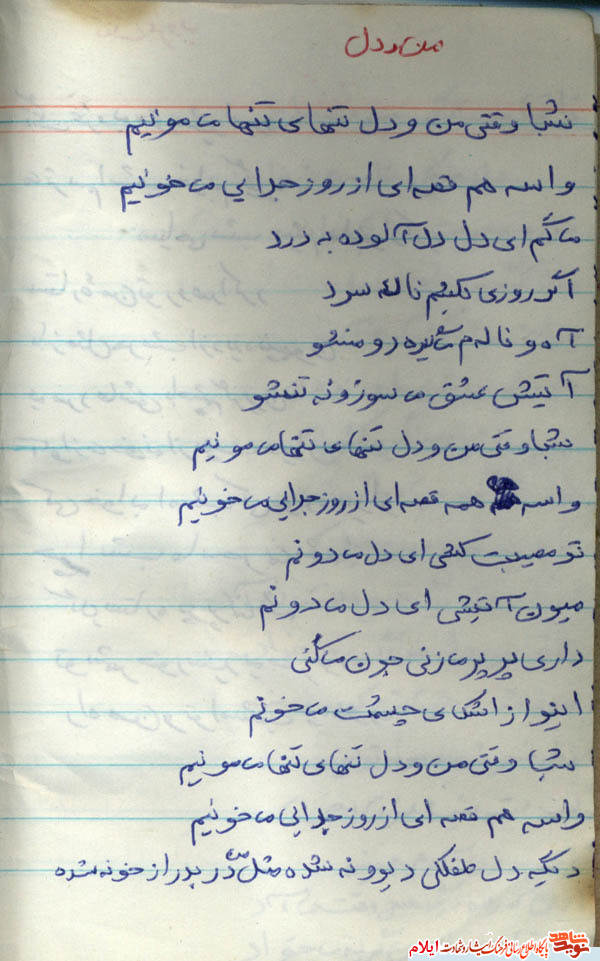 من و دل
شبا وقتی من و دل تنهای تنها می مونیم
واسه هم قصه ای از روز جدایی می خونیم
می گم ای دل دل آلوده به درد
اگر روزی بکشم ناله سرد
آه و ناله م می گیره دومنشو
آتیش عشق می سوزونه تنشو
شبا وقتی من و دل تنهای تنها می مونیم
واسه همه قصه ای از روز جدایی می خونیم
تو مصیبت کشی ای دل می دونم
میون آتیشی ای دل می دونم
داری پرپر می زنی جون می کنی
اینو از اشکای چشمت می خونم
شبا وقتی من و دل تنهای تنها می مونیم
واسه هم قصه ای از روز جدایی می خونیم
دیگه دل طفلکی دیوونه شده مثل در بدر از خونه شده
نوید شاهد پایگاه اطلاع رسانی فرهنگ ایثار و شهادت ایلام